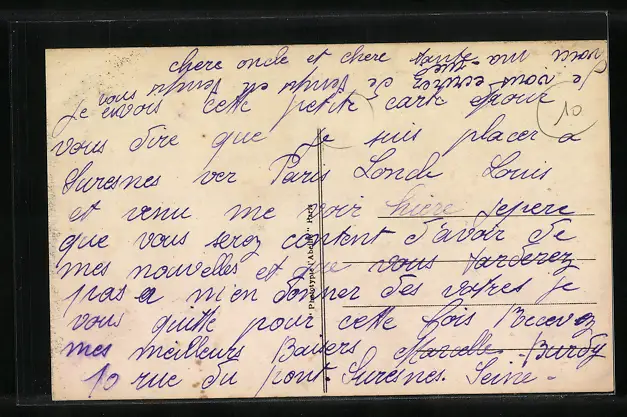 chere oncle et chere tante
Je vous envois cette petite carte pour
vous dire que je suis placer a
Suresnes ver Paris Loncle Louis
et venu me voir hiere jespere
que vous serez content d'avoir de
mes nouvelles et que vous tarderez
pas a m'en donner des votres je
vous quitte pour cette fois Recevez
mes meilleurs Baisers Marcelle Burdy
10 rue du pont. Suresnes. Seine -
je vous ecrirez de temps en temps
10
Phototypie "Abeille" Paris